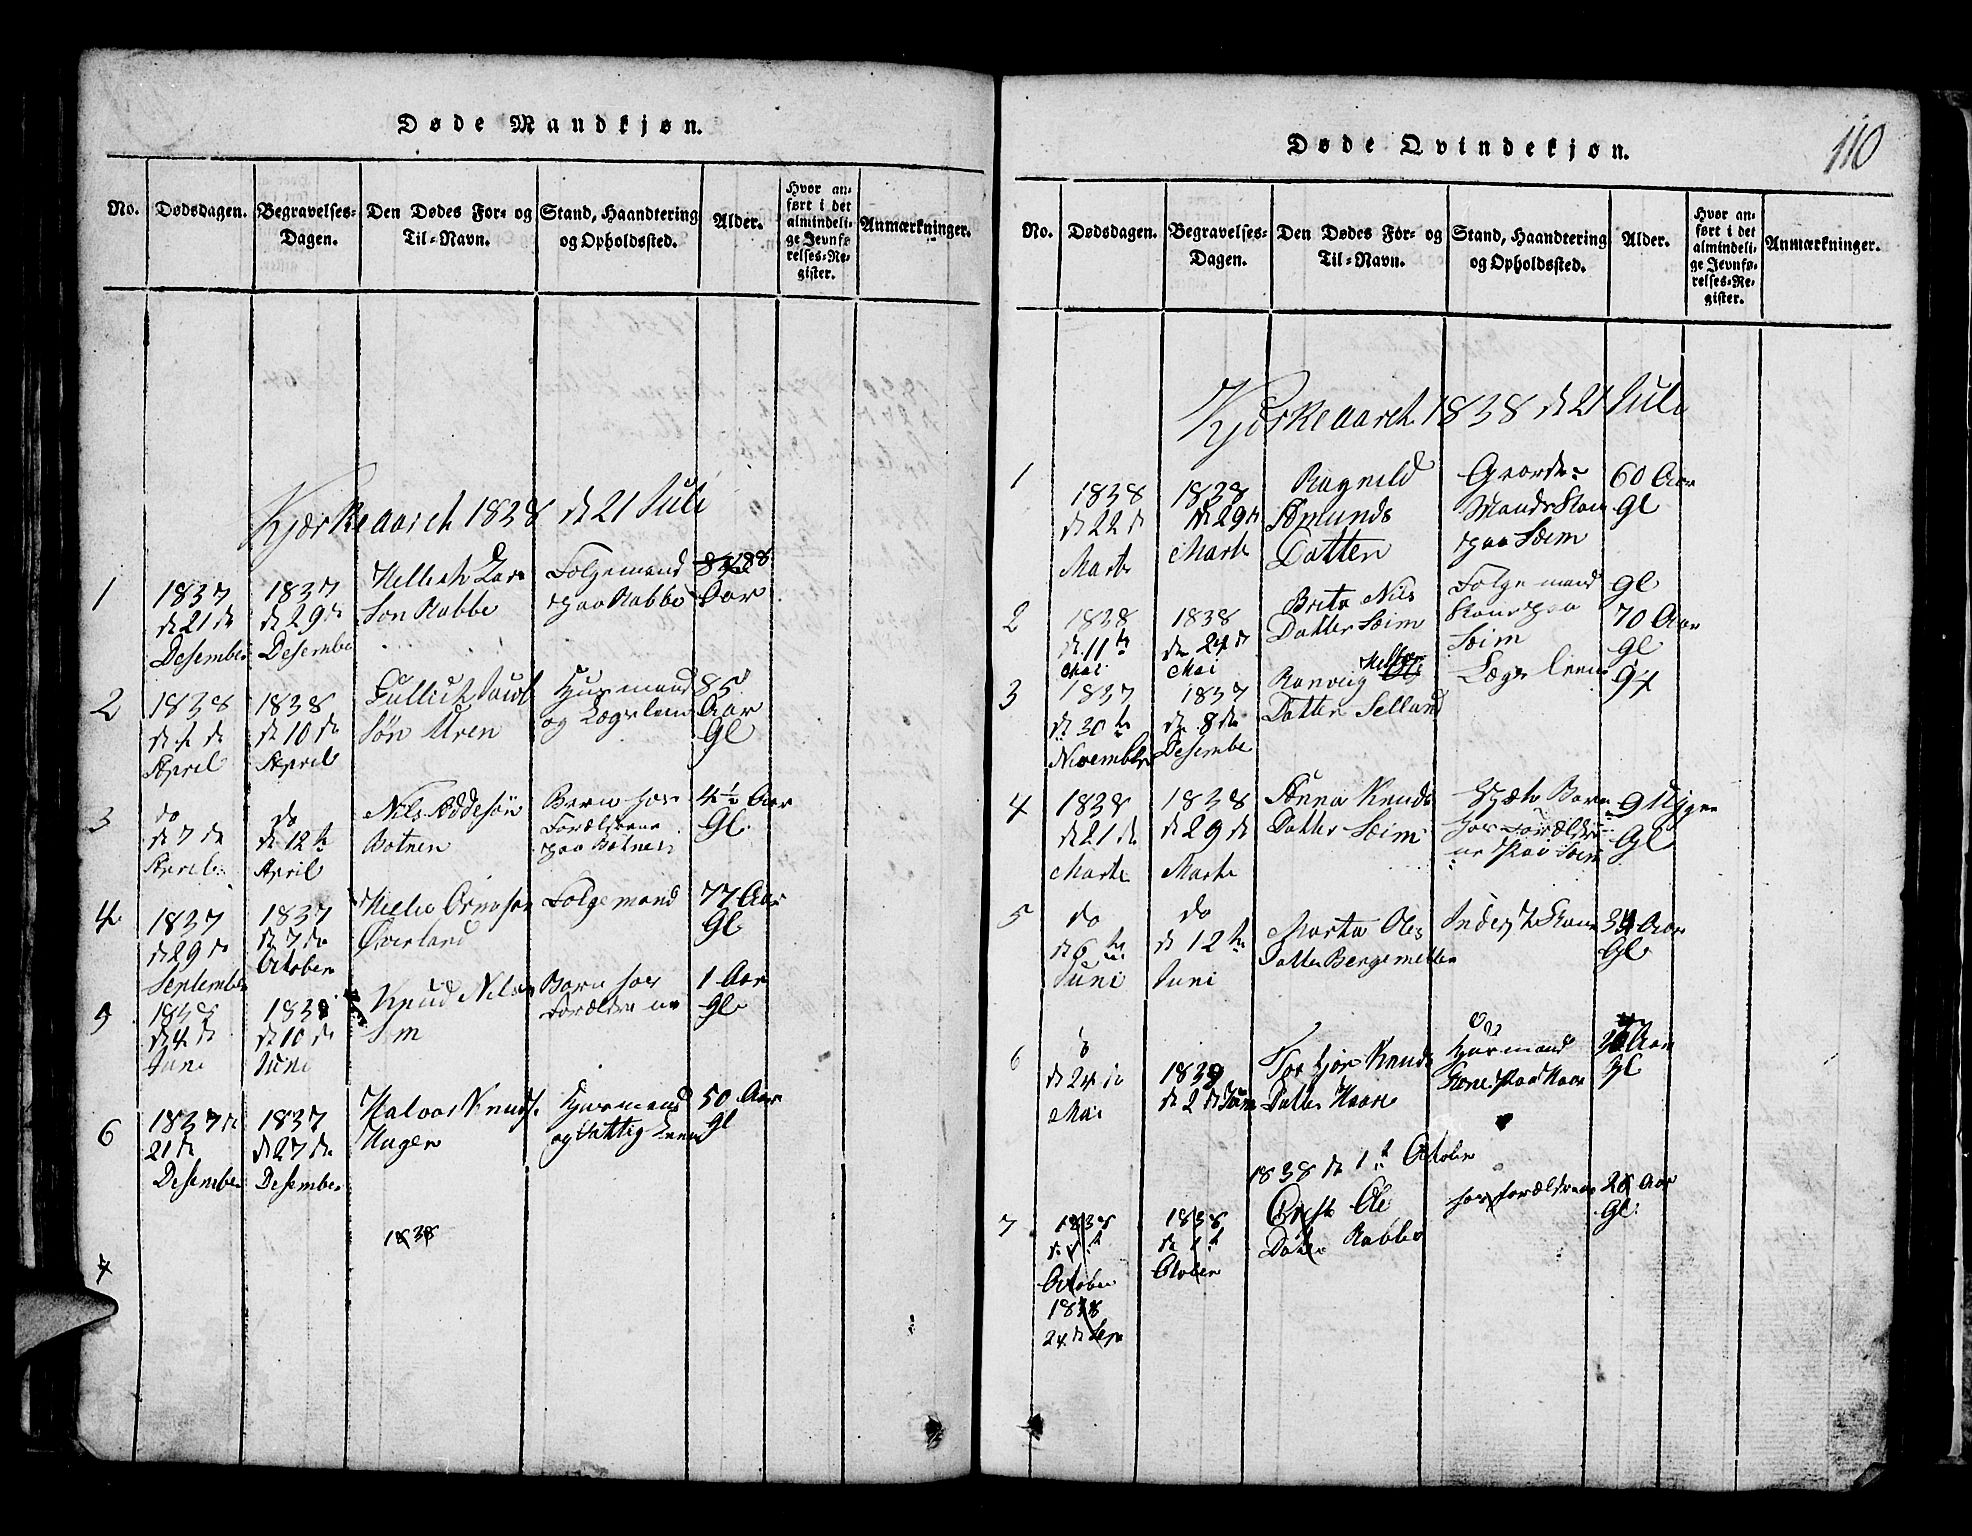 Døde Mandkjøn.
No.
Dødsdagen.
Begravelses-
Dagen.
Den Dødes For- og
Til-Navn.
Stand, Haandtering
og Opholdssted.
Alder.
Hvor an-
ført i det
almindeli-
ge Jevnfø
relses-Re-
gister.
Anmærkninger.
Kjærkeaaret 1838 d 21 Juli
1
1837
d 21 d
Desember
1837
d 29 d
Desember
Søn Rabbe
Folgemand
paa Rabbe
88
Aar
2
1838
April
1838
d 10 de
April
Søn Uren
Huusmand
og Lægslem
85
Aar
Gl
3
do
d 7 de
April
do
d 12 te
April
Nils Oddesøn
Botnen
Barn hos
Forældrene
paa Botnen
4½ Aar
Gl.
4
1837
d 29 d
September
1837
d 7 de
October
Øverland
Folgemand
77 Aar
Gl
5
1838
d 4 d
Juni
1838
d 10 d
Juni
Knud Nilsøn
Barn hos
Forældrene
1 Aar
Gl
6
1837 d
21 d
Desember
1837
d 27 de
Desember
Halvor Knuds
Hagen
Huusmand
og Fattig Lem
50 Aar
gl
7
1838
Døde Qvindekjøn.
110
No.
Dødsdagen.
Begravelses-
Dagen.
Den Dødes For- og
Til-Navn.
Stand, Haandtering
og Opholdssted.
Alder.
Hvor an-
ført i det
almindeli-
ge Jevnfø-
relses-Re-
gister.
Anmærkninger.
Kjørkeaaret 1838 d 21 Juli
1
1838
d 22 d
Marts
1838
d 29 d
Marts
Ragnild
Aamunds
Datter
Gaarde-
Mands Kone
paa Seim
60 Aar
Gl
2
1838
d 11 te
Mai
1838
de 24 d
Mai
Brita Nils
Datter Seim
Folgemand
Kone paa
Seim
gl
70 Aar
gl
3
1837
d 30 te
November
1837
de 8 de
Desembe
Ranveig
Datter Selland
Lægs Lem
94
4
1838
d 21 d
Marts
1838
d 29 d
Marts
Anna Knuds
Datter Seim
Spæd Barn
hos Forældre
ne paa Seim
9 Uger
Gl
5
do
d 6 te
Juni
do
d 12 te
Juni
Marta Oles
Datter
Inderst Kone
Aar
Gl
6
d 24 d
Mai
1838
d 2 d Juni
Torbjør Knuds
Datter Haane
Huusmand
Kone paa Haane
Aar
gl
1838 d 1 t October
7
1838
October
1838
24 d Sep
1838
October
Ole
Dater Rabbe
hos forældrene
Aar
Gl